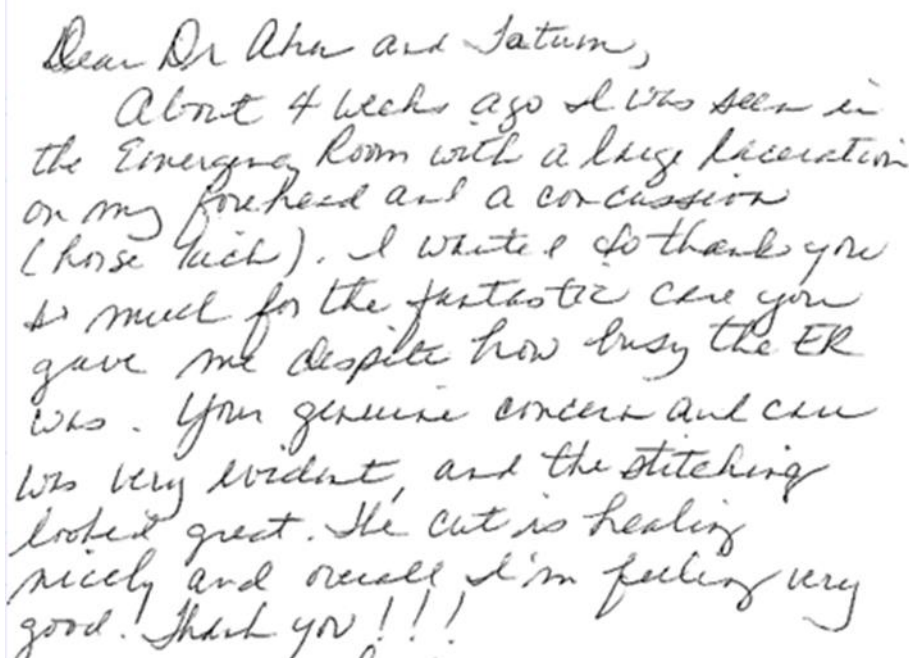 Dear Dr Ahn and Tatum,
About 4 weeks ago I was seen in
the Emergency Room with a large laceration
on my forehead and a concussion
(horse kick). I wanted to thank you
so much for the fantastic care you
gave me despite how busy the ER
was. Your genuine concern and care
was very evident, and the stitching
looked great. The cut is healing
nicely and overall I'm feeling very
good. Thank you!!!